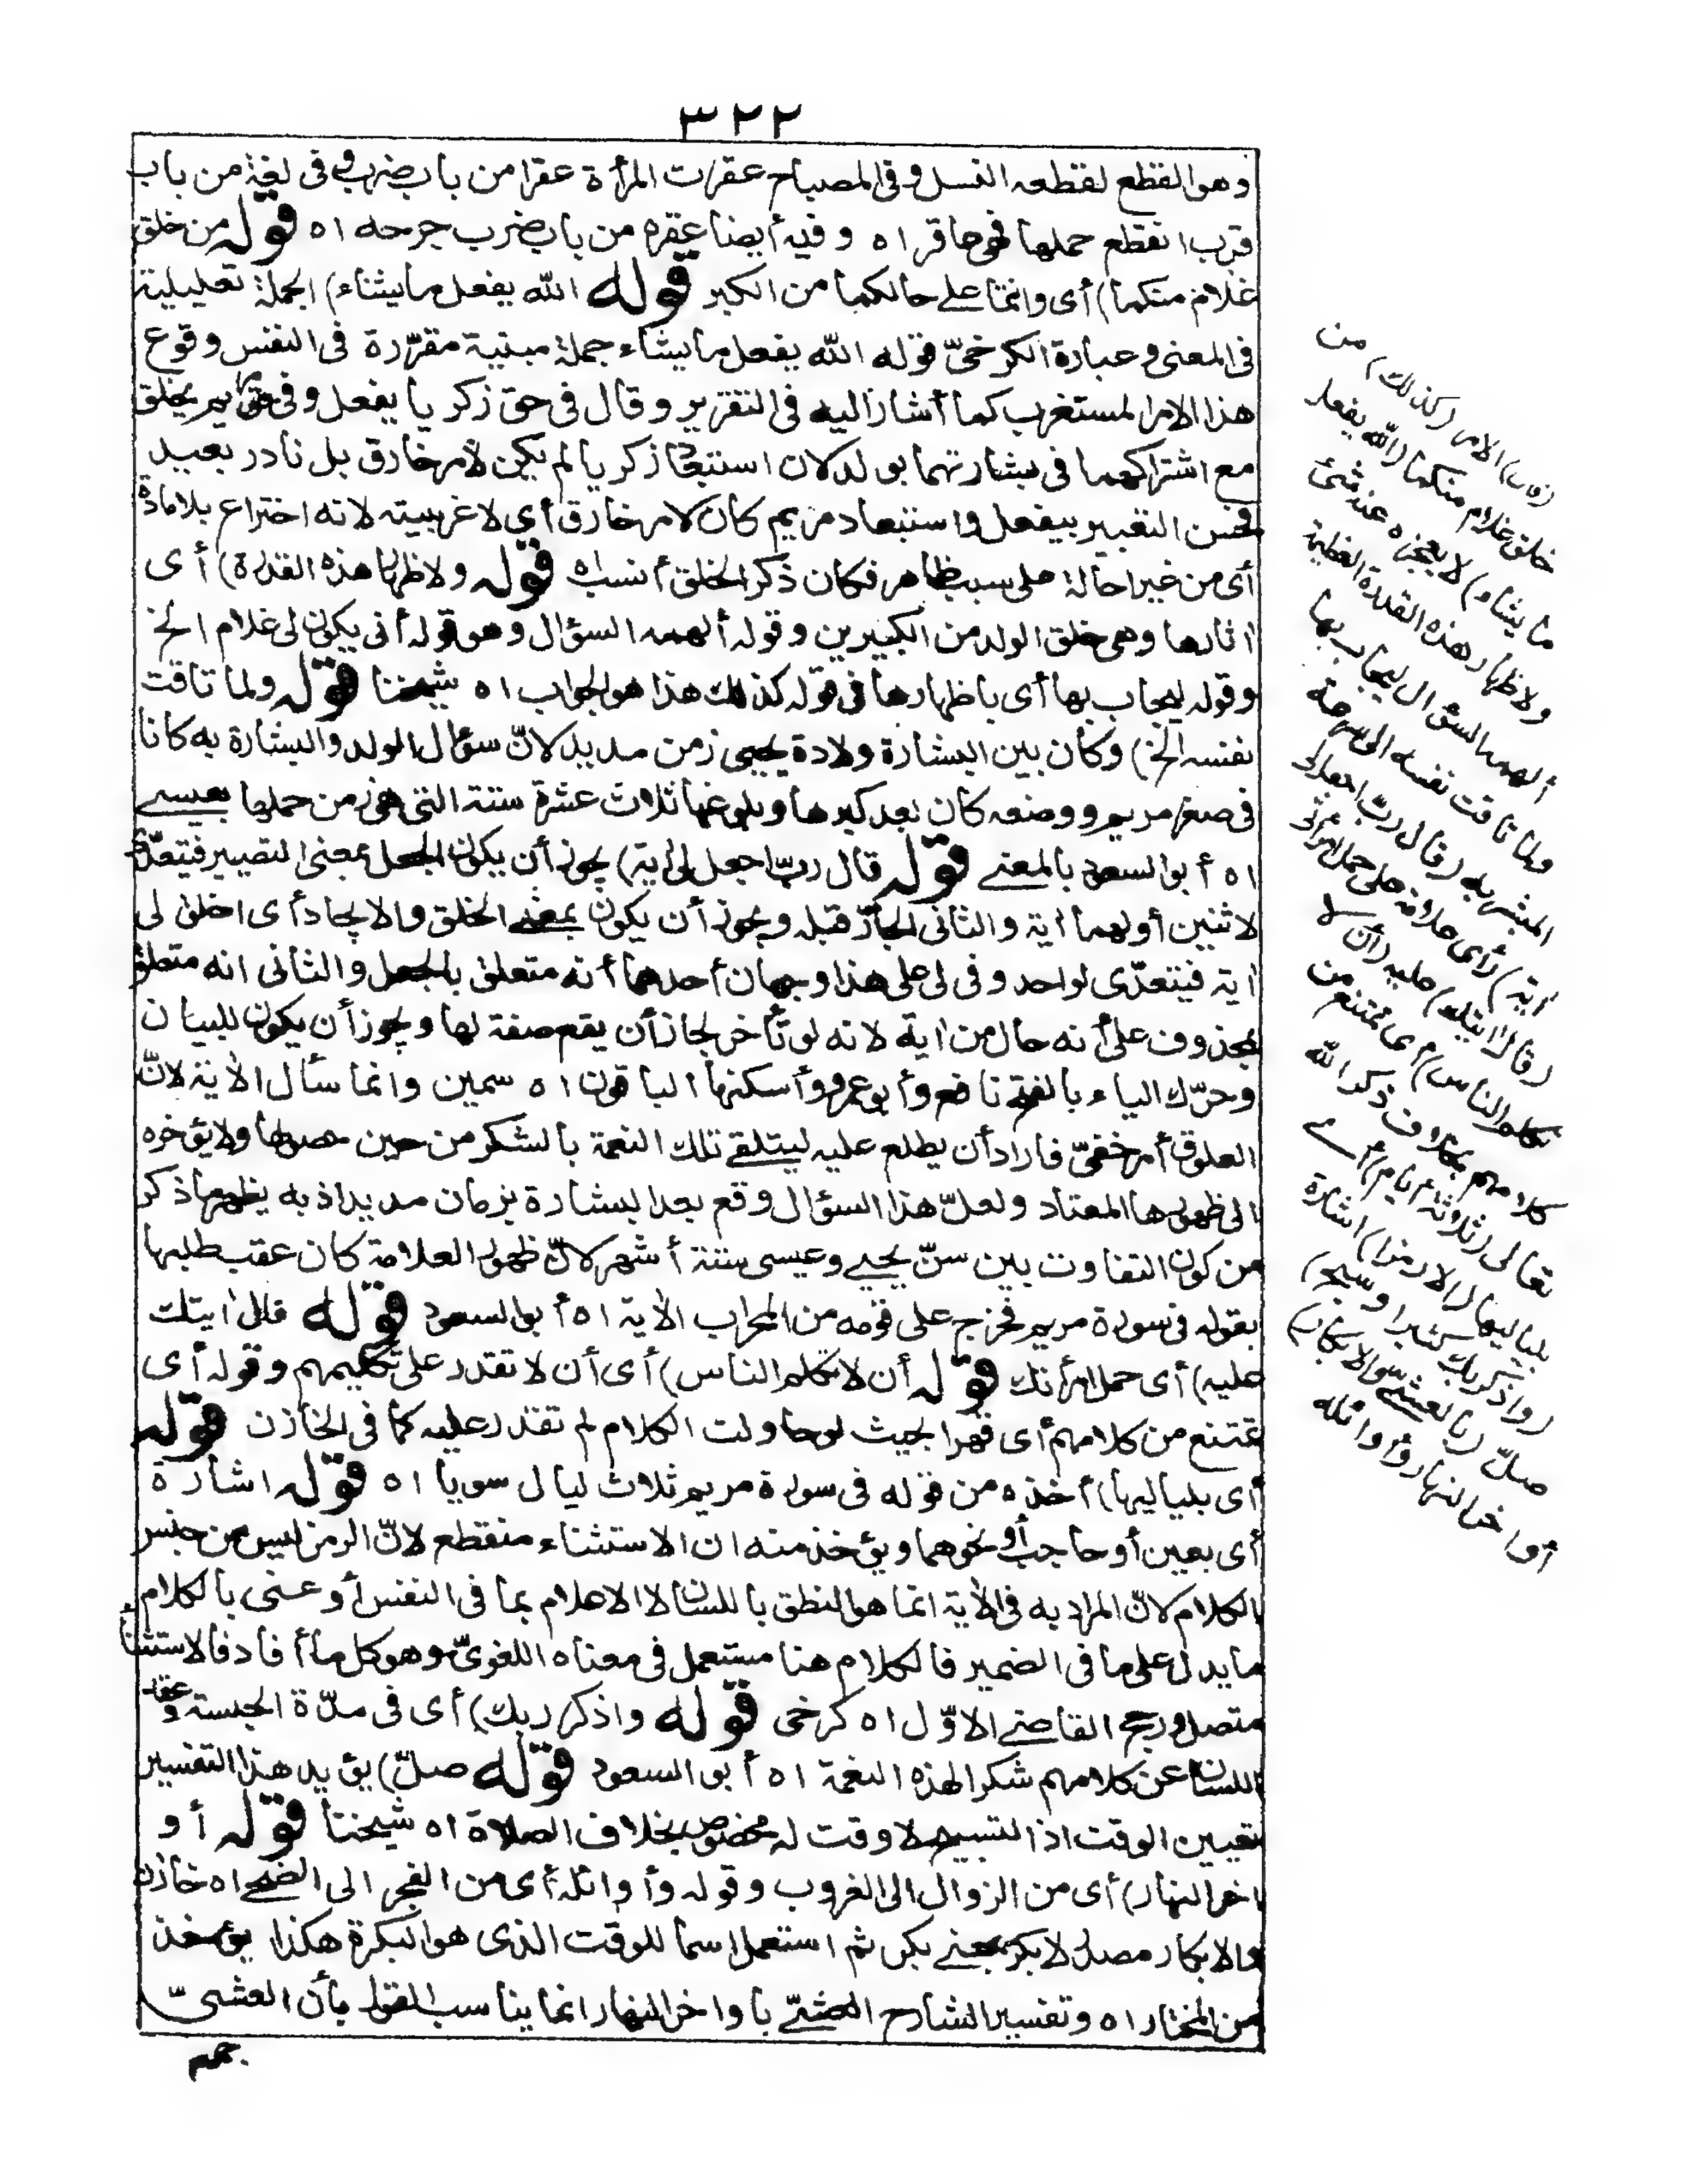 ٣٢٢
وهو القطع لقطعه النسل وفى المصباح عقرت المرأة عقرا من باب ضرب وفى لغة من باب
قرب انقطع حملها فهى عاقر اه وفيه أيضا عقره من باب ضرب جرحه اه قوله من خلق
غلام منكما) أى وانتما على حالكما من الكبر قوله الله يفعل ما يشاء) الجملة تعليلية
فى المعنى وعبارة الكرخىّ قوله الله يفعل ما يشاء جملة مبنية مقرّرة فى النفس وقوع
هذا الامر المستغرب كما أشار اليه فى التقرير وقال فى حق زكريا يفعل وفى حق مريم يخلق
مع اشتراكهما فى بشارتهما بولد لان استبعاد زكريا لم يكن لأمر خارق بل نادر بعيد
فحسن التعبير بيفعل واستبعاد مريم كان لامر خارق أى لا غريبيته لانه اختراع بلا مادة
أى من غير احالة على سبب ظاهر فكان ذكر الخلق أنسب اه قوله ولاظهار هذه القدرة) أى
اٰثارها وهى خلق الولد من الكبيرين وقوله ألهمه السؤال وهو قوله أنى يكون لى غلام الخ
وقوله ليجاب بها أى باظهارها فى قوله كذلك هذا هو الجواب اه شيخنا قوله ولما تاقت
نفسه الخ) وكان بين البشارة وولادة يحيى زمن مديد لانّ سؤال الولد والبشارة به كانا
فى صغر مريم ووضعه كان بعد كبرها وبلوغها ثلاث عشرة سنة التى هى زمن حملها بعيسى
اه أبو السعود بالمعنى قوله قال ربّ اجعل لى اٰية) يجوز أن يكون الجعل بمعنى التصيير فيتعدّى
لاثنين أولهما اٰية والثانى الجارّ قبله ويجوز أن يكون بمعنى الخلق والايجاد أى اخلق لى
اٰية فيتعدّى لواحد وفى لى على هذا وجهان أحدهما أنه متعلق بالجعل والثانى انه متعلق
بمحذوف على أنه حال من اٰية لانه لو تأخر لجاز أن يقع صفة لها ويجوز أن يكون للبيان
وحرّك الياء بالفتح نافع وأبو عمرو وأسكنها الباقون اه سمين وانما سأل الاٰية لانّ
العلوق أمر خفىّ فاراد أن يطلع عليه ليتلقى تلك النعمة بالشكر من حين حصولها ولا يؤخره
الى ظهورها المعتاد ولعلّ هذا السؤال وقع بعد البشارة بزمان مديد اذ به يظهر ما ذكر
من كون التفاوت بين سنّ يحيى وعيسى ستة أشهر لانّ ظهور العلامة كان عقب طلبها
بقوله فى سورة مريم فخرج على قومه من المحراب الاٰية اه أبو السعود قوله قال اٰيتك
عليه) أى حمل امرأتك قوله أن لا تكلم الناس) أى أن لا تقدر على تكليمهم وقوله أى
تمتنع من كلامهم أى قهرا بحيث لو حاولت الكلام لم تقدر عليه كما فى الخازن قوله
أى بلياليها) أخذه من قوله فى سورة مريم ثلاث ليال سويا اه قوله اشارة
أى بعين أو حاجب أو نحوهما ويؤخذ منه ان الاستثناء منقطع لانّ الرمز ليس من جنس
الكلام لانّ المراد به فى الاٰية انما هو النطق باللسان لا الاعلام بما فى النفس أو عنى بالكلام
ما يدل على ما فى الضمير فالكلام هنا مستعمل فى معناه اللغوىّ وهو كل ما أفاد فالاستثناء
متصل ورجح القاضى الاوّل اه كرخى قوله واذكر ربك) أى فى مدّة الحبسة وعقد
اللسان عن كلامهم شكرا لهذه النعمة اه أبو السعود قوله صلّ) يؤيد هذا التفسير
تعيين الوقت اذ التسبيح لا وقت له مخصوص بخلاف الصلاة اه شيخنا قوله أو
اخر النهار) أى من الزوال الى الغروب وقوله وأوائله أى من الفجر الى الضحى اه خازن
والابكار مصدر لابكر بمعنى بكر ثم استعمل اسما للوقت الذى هو البكرة هكذا يؤخذ
من المختار اه وتفسير الشارح العشىّ باواخر النهار انما يناسب القول بأن العشىّ
جمع
(قال) الامر (كذلك) من
خلق غلام منكما (الله يفعل
ما يشاء) لا يعجزه عنه شئ
ولاظهار هذه القدرة العظيمة
ألهمه السؤال ليجاب بها
ولما تاقت نفسه الى سرعة
المبشر به (قال ربّ اجعل لى
اٰية) أى علامة على حمل امرأتى
(قال اٰيتك) عليه (أن لا
تكلم الناس) أى تمتنع من
كلامهم بخلاف ذكر الله
تعالى (ثلاثة أيام) أى
بلياليها (الا رمزا) اشارة
(واذكر ربك كثيرا وسبح)
صلّ (بالعشىّ والابكار)
أواخر النهار وأوائله